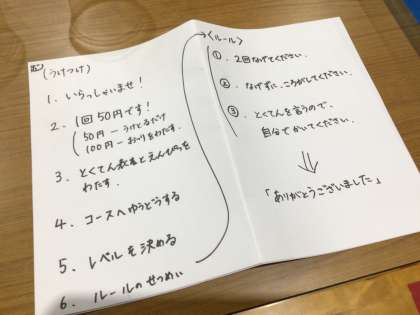 (うけつけ)
1. いらっしゃいませ!
2. 1回50円です!
50円ーうけとるだけ
100円ーおつりをわたす.
3. とくてん表とえんぴつを
わたす.
4. コースへゆうどうする
5. レベルを決める
6. ルールのせつめい
<ルール>
① . 2回なげてください.
② . なげずに、ころがしてください.
③ . とくてんを言うので、
自分でかいてください.
⇓
「ありがとうございました」